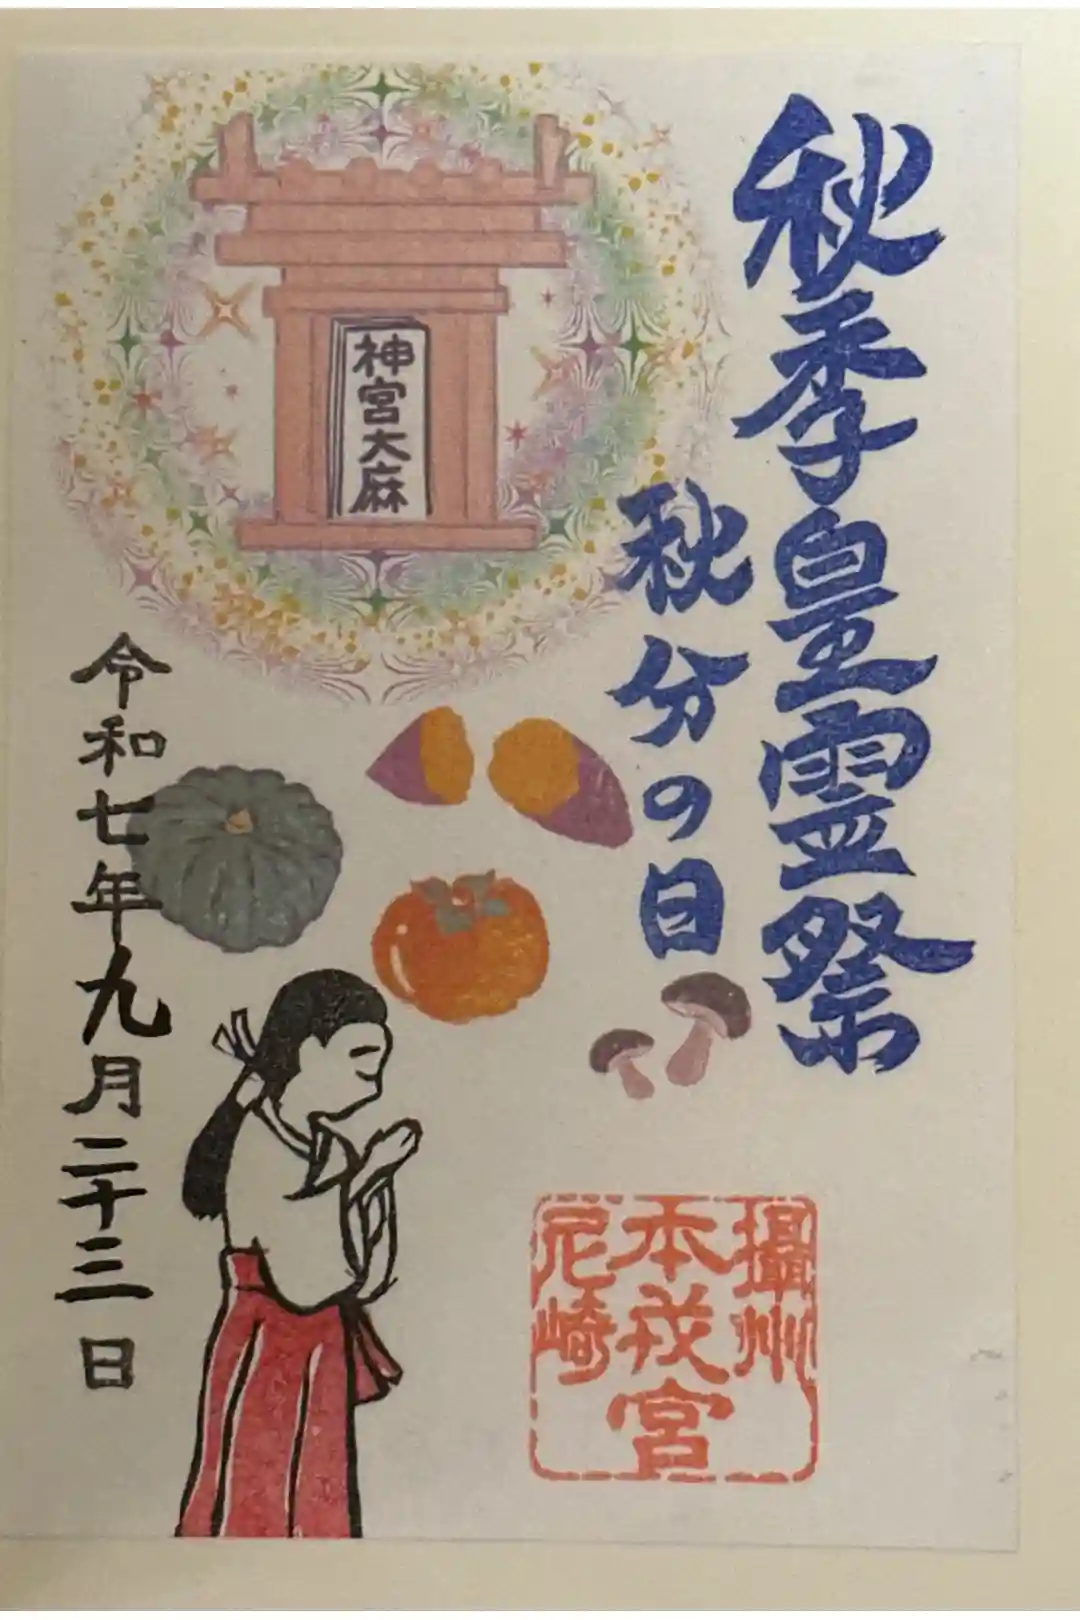 秋季皇霊祭
秋分の日
神宮大麻
令和七年九月二十三日
攝州
本戎宮
尼崎